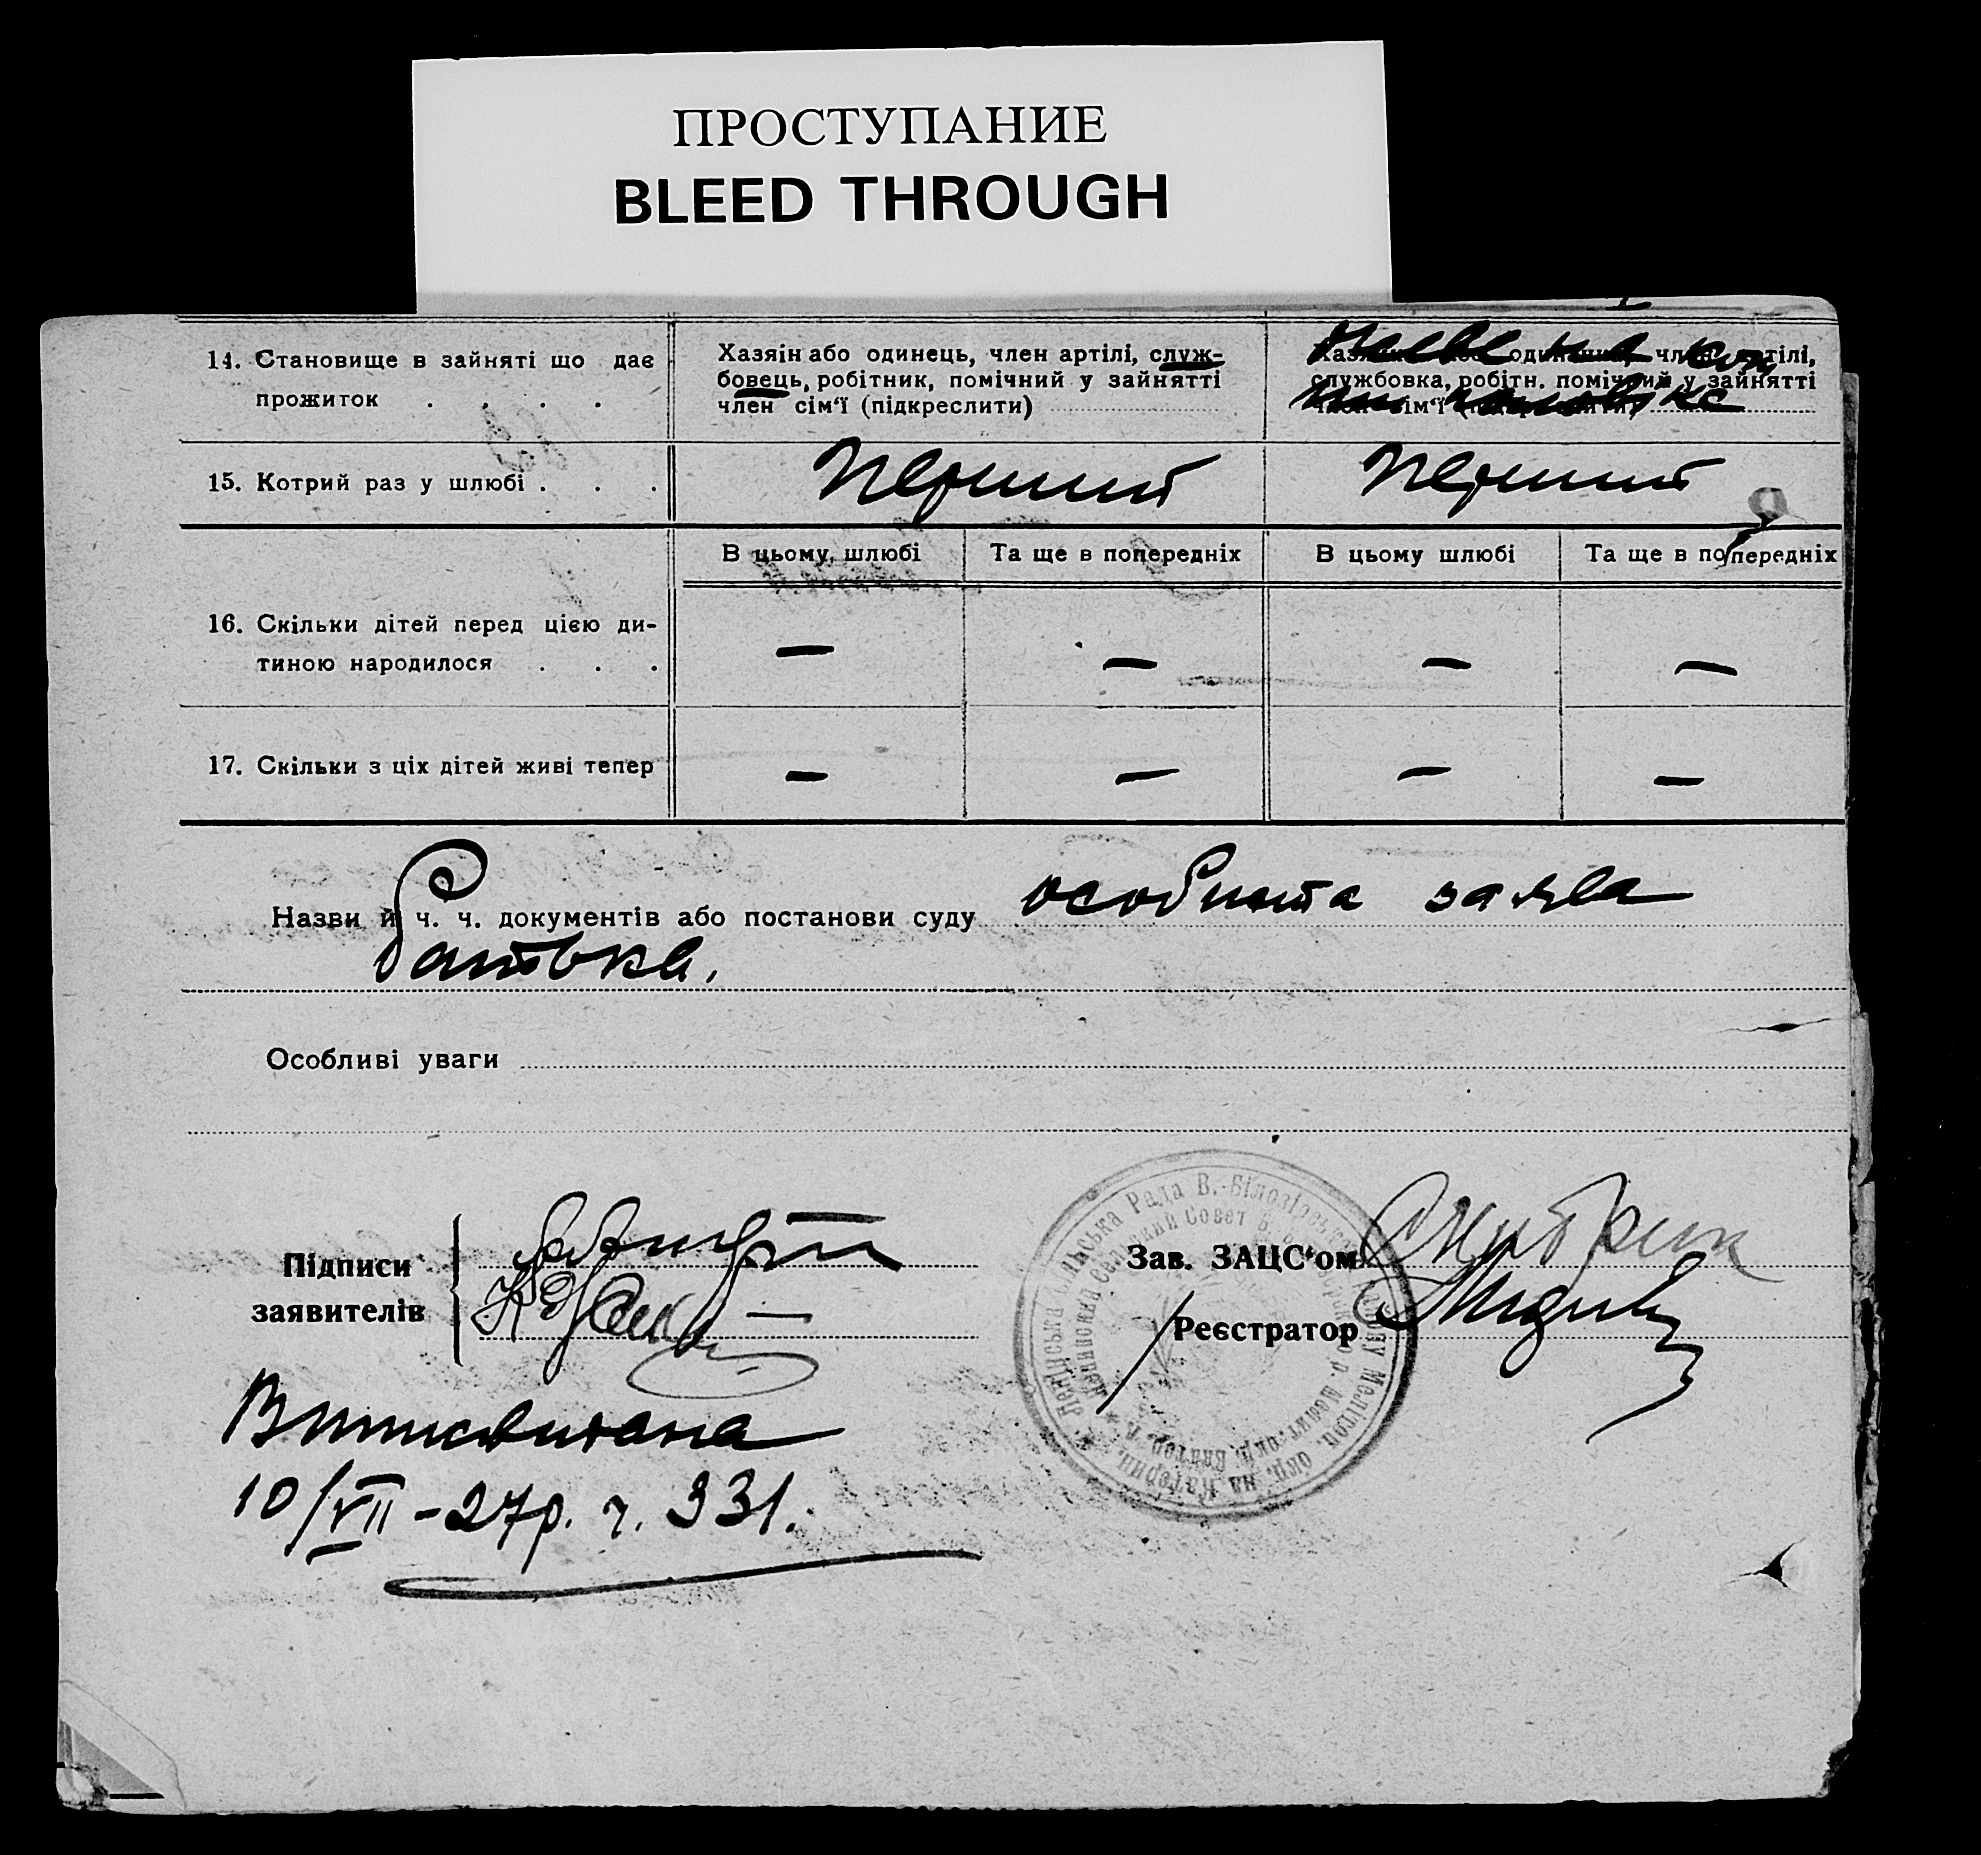 ПРОСТУПАНИЕ
BLEED THROUGH
14. Становище в зайняті що дає прожиток . . . .
Хазяін або одинець, член артілі, служ-
бовець, робітник, помічний у зайнятті
член сім'ї (підкреслити)
одиначка, член артілі,
службовка, робітн. помічний у зайнятті
сім'ї
15. Котрий раз у шлюбі . . .
Перший
Перший
В цьому шлюбі
Та ще в попередніх
В цьому шлюбі
Та ще в попередніх
16. Скільки дітей перед цією ди-
тиною народилося . . .
— — — —
17. Скільки з ціх дітей живі тепер
— — — —
Назви й ч. ч. документів або постанови суду особиста заява
батька.
Особливі уваги
Підписи
заявителів
Зав. ЗАЦС'ом
Реєстратор
Сільська Рада В.-Білозірськ
Виписвитана
10/VII – 27р. ч. 331.